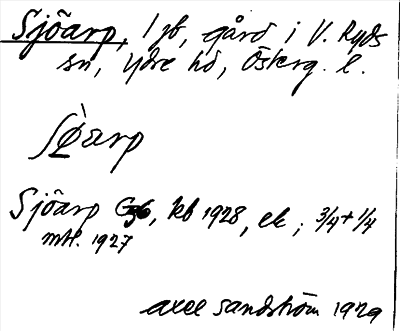 Sjöarp, 1 gb, gård i V. Ryds
sn, Ydre hd, Österg. l.
ʃø̀arp
Sjöarp Gsb, kb 1928, ek; 3/4+1/4
mtl. 1927
Axel Sandström 1929